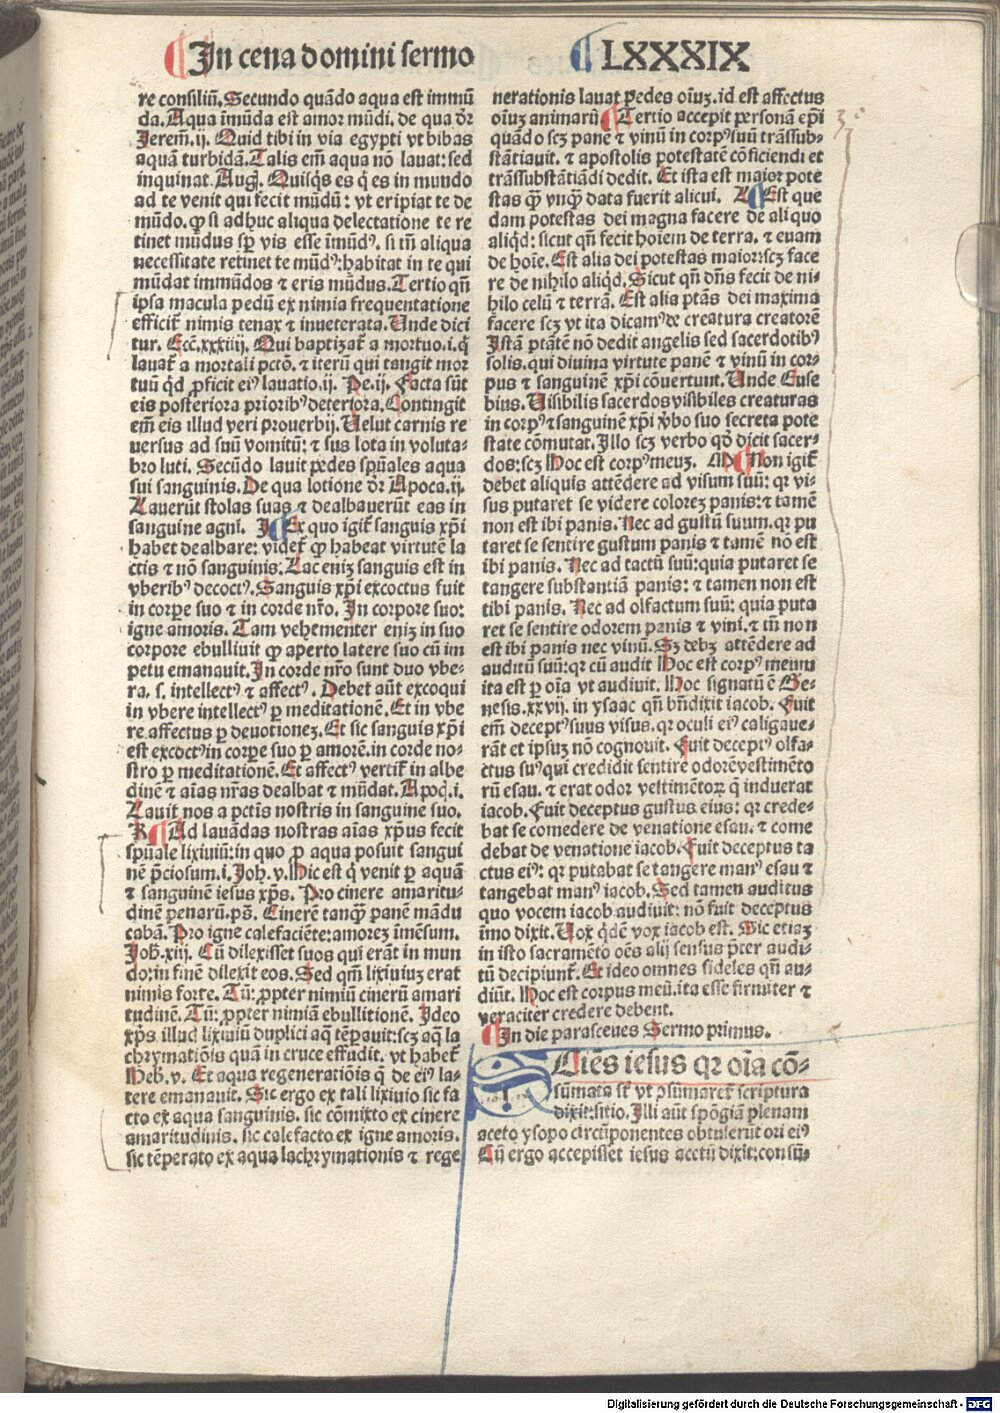 ¶ In cena domini sermo
¶ LXXXIX
re consiliū. Secundo quādo aqua est immū
da. Aqua īmūda est amor mūdi. de qua dr̄
Jerem̄. ij. Quid tibi in via egypti vt bibas
aquā turbidā. Talis em̄ aqua nō lauat: sed
inquinat. Augꝰ. Quisq̄s es q̄ es in mundo
ad te venit qui fecit mūdū: vt eripiat te de
mūdo. ꝙ si adhuc aliqua delectatione te re
tinet mūdus sꝑ vis esse īmūdꝰ. si tn̄ aliqua
necessitate retinet te mūdꝰ: habitat in te qui
mūdat immūdos ⁊ eris mūdus. Tertio qn̄
ipsa macula pedū ex nimia frequentatione
efficit̄ nimis tenax ⁊ inueterata. Unde dici
tur. Ecc̄. xxxiiij. Qui baptizat̄ a mortuo. i. q̄
lauat̄ a mortali pctō. ⁊ iterū qui tangit mor
tuū qd̄ ꝓficit eiꝰ lauatio. ij. Pe. ij. Facta sūt
eis posteriora prioribꝰ deteriora. Contingit
em̄ eis illud veri prouerbij. Velut carnis re
uersus ad suū vomitū: ⁊ sus lota in voluta-
bro luti. Secūdo lauit pedes spūales aqua
sui sanguinis. De qua lotione dr̄ Apoca. ij.
Lauerūt stolas suas ⁊ dealbauerūt eas in
sanguine agni. J ¶ Ex quo igit̄ sanguis xp̄i
habet dealbare: videt̄ ꝙ habeat virtutē la
ctis ⁊ nō sanguinis. Lac eniꝫ sanguis est in
vberibꝰ decoctꝰ. Sanguis xp̄i excoctus fuit
in corpe suo ⁊ in corde nr̄o. In corpore suo:
igne amoris. Tam vehementer eniꝫ in suo
corpore ebulliuit ꝙ aperto latere suo cū im
petu emanauit. In corde nr̄o sunt duo vbe-
ra. s. intellectꝰ ⁊ affectꝰ. Debet aūt excoqui
in vbere intellectꝰ ꝑ meditationē. Et in vbe
re affectus ꝑ deuotionez. Et sic sanguis xp̄i
est excoctꝰ in corpe suo ꝑ amorē. in corde no-
stro ꝑ meditationē. Et affectꝰ vertit̄ in albe
dinē ⁊ aīas nr̄as dealbat ⁊ mūdat. Apoc̄. i.
Lauit nos a pctīs nostris in sanguine suo.
K ¶ Ad lauādas nostras aīas xp̄us fecit
spūale lixiuiū: in quo ꝑ aqua posuit sangui
nē p̄ciosum. i. Joh. v. Hic est q̄ venit ꝑ aquā
⁊ sanguinē iesus xp̄s. Pro cinere amaritu-
dinē penarū. ps̄. Cinerē tanqꝫ panē mādu
cabā. Pro igne calefaciēte: amorez īmēsum.
Joh. xiij. Cū dilexisset suos qui erāt in mun
do: in finē dilexit eos. Sed qm̄ lixiuiuz erat
nimis forte. Tū: ꝓpter nimiū cinerū amari
tudinē. Tū: ꝓpter nimiā ebullitionē. Ideo
xp̄s illud lixiuiū duplici aq̄ tēpauit: scꝫ aq̄ la
chrymatiōis quā in cruce effudit. vt habet̄
Heb. v. Et aqua regeneratiōis q̄ de eiꝰ la-
tere emanauit. Sic ergo ex tali lixiuio sic fa
cto ex aqua sanguinis. sic cōmixto ex cinere
amaritudinis. sic calefacto ex igne amoris.
sic tēperato ex aqua lachrymationis ⁊ rege
nerationis lauat pedes oīuꝫ. id est affectus
oīuꝫ animarū. ¶ Tertio accepit personā ep̄i
quādo scꝫ panē ⁊ vinū in corpꝰ suū trāssub-
stātiauit. ⁊ apostolis potestatē cōficiendi et
trāssubstātiādi dedit. Et ista est maior pote
stas qꝫ vnqꝫ data fuerit alicui. L ¶ Est que
dam potestas dei magna facere de aliquo
aliqd̄: sicut qn̄ fecit hoiem de terra. ⁊ euam
de hoīe. Est alia dei potestas maior: scꝫ face
re de nihilo aliqd̄. Sicut qn̄ dn̄s fecit de ni-
hilo celū ⁊ terrā. Est alia ptās dei maxima
facere scꝫ vt ita dicamꝰ de creatura creatorē
Istā ptātē nō dedit angelis sed sacerdotibꝰ
solis. qui diuina virtute panē ⁊ vinū in cor-
pus ⁊ sanguinē xp̄i cōuertunt. Unde Euse
bius. Uisibilis sacerdos visibiles creaturas
in corpꝰ ⁊ sanguinē xp̄i v̄bo suo secreta pote
state cōmutat. Illo scꝫ verbo qd̄ dicit sacer-
dos: scꝫ Hoc est corpꝰ meuꝫ. M ¶ Non igit̄
debet aliquis attēdere ad visum suū: qr vi-
sus putaret se videre colorez panis: ⁊ tamē
non est ibi panis. Nec ad gustū suum. qr pu
taret se sentire gustum panis ⁊ tamē nō est
ibi panis. Nec ad tactū suū: quia putaret se
tangere substantiā panis: ⁊ tamen non est
tibi panis. Nec ad olfactum suū: quia puta
ret se sentire odorem panis ⁊ vini. ⁊ tn̄ non
est ibi panis nec vinū. Sꝫ debꝫ attēdere ad
auditū suū: qr cū audit Hoc est corpꝰ meum
ita est ꝑ oīa vt audiuit. Hoc signatū ē Ge-
nesis. xxvij. in ysaac qn̄ bn̄dixit iacob. Fuit
em̄ deceptꝰ suus visus. qr oculi eiꝰ caligaue-
rāt et ipsuꝫ nō cognouit. Fuit deceptꝰ olfa-
ctus suꝰ qui credidit sentire odorē vestimēto
rū esau. ⁊ erat odor vestimētoꝝ q̄ induerat
iacob. Fuit deceptus gustus eius: qr crede-
bat se comedere de venatione esau. ⁊ come
debat de venatione iacob. Fuit deceptus ta
ctus eiꝰ: qr putabat se tangere manꝰ esau ⁊
tangebat manꝰ iacob. Sed tamen auditus
quo vocem iacob audiuit: nō fuit deceptus
īmo dixit. Vox q̄dē vox iacob est. Sic etiaꝫ
in isto sacramēto oēs alij sensus p̄ter audi-
tū decipiunt̄. Et ideo omnes fideles qn̄ au-
diūt. Hoc est corpus meū. ita esse firmiter ⁊
veraciter credere debent.
¶ In die parasceues Sermo primus.
Ciēs iesus qr oīa cō-
sūmata st̄ vt ꝯsūmaret̄ scriptura
dixit: sitio. Illi aūt spōgiā plenam
aceto ysopo circūponentes obtulerūt ori eiꝰ
Cū ergo accepisset iesus acetū dixit: consū-
Digitalisierung gefördert durch die Deutsche Forschungsgemeinschaft - DFG